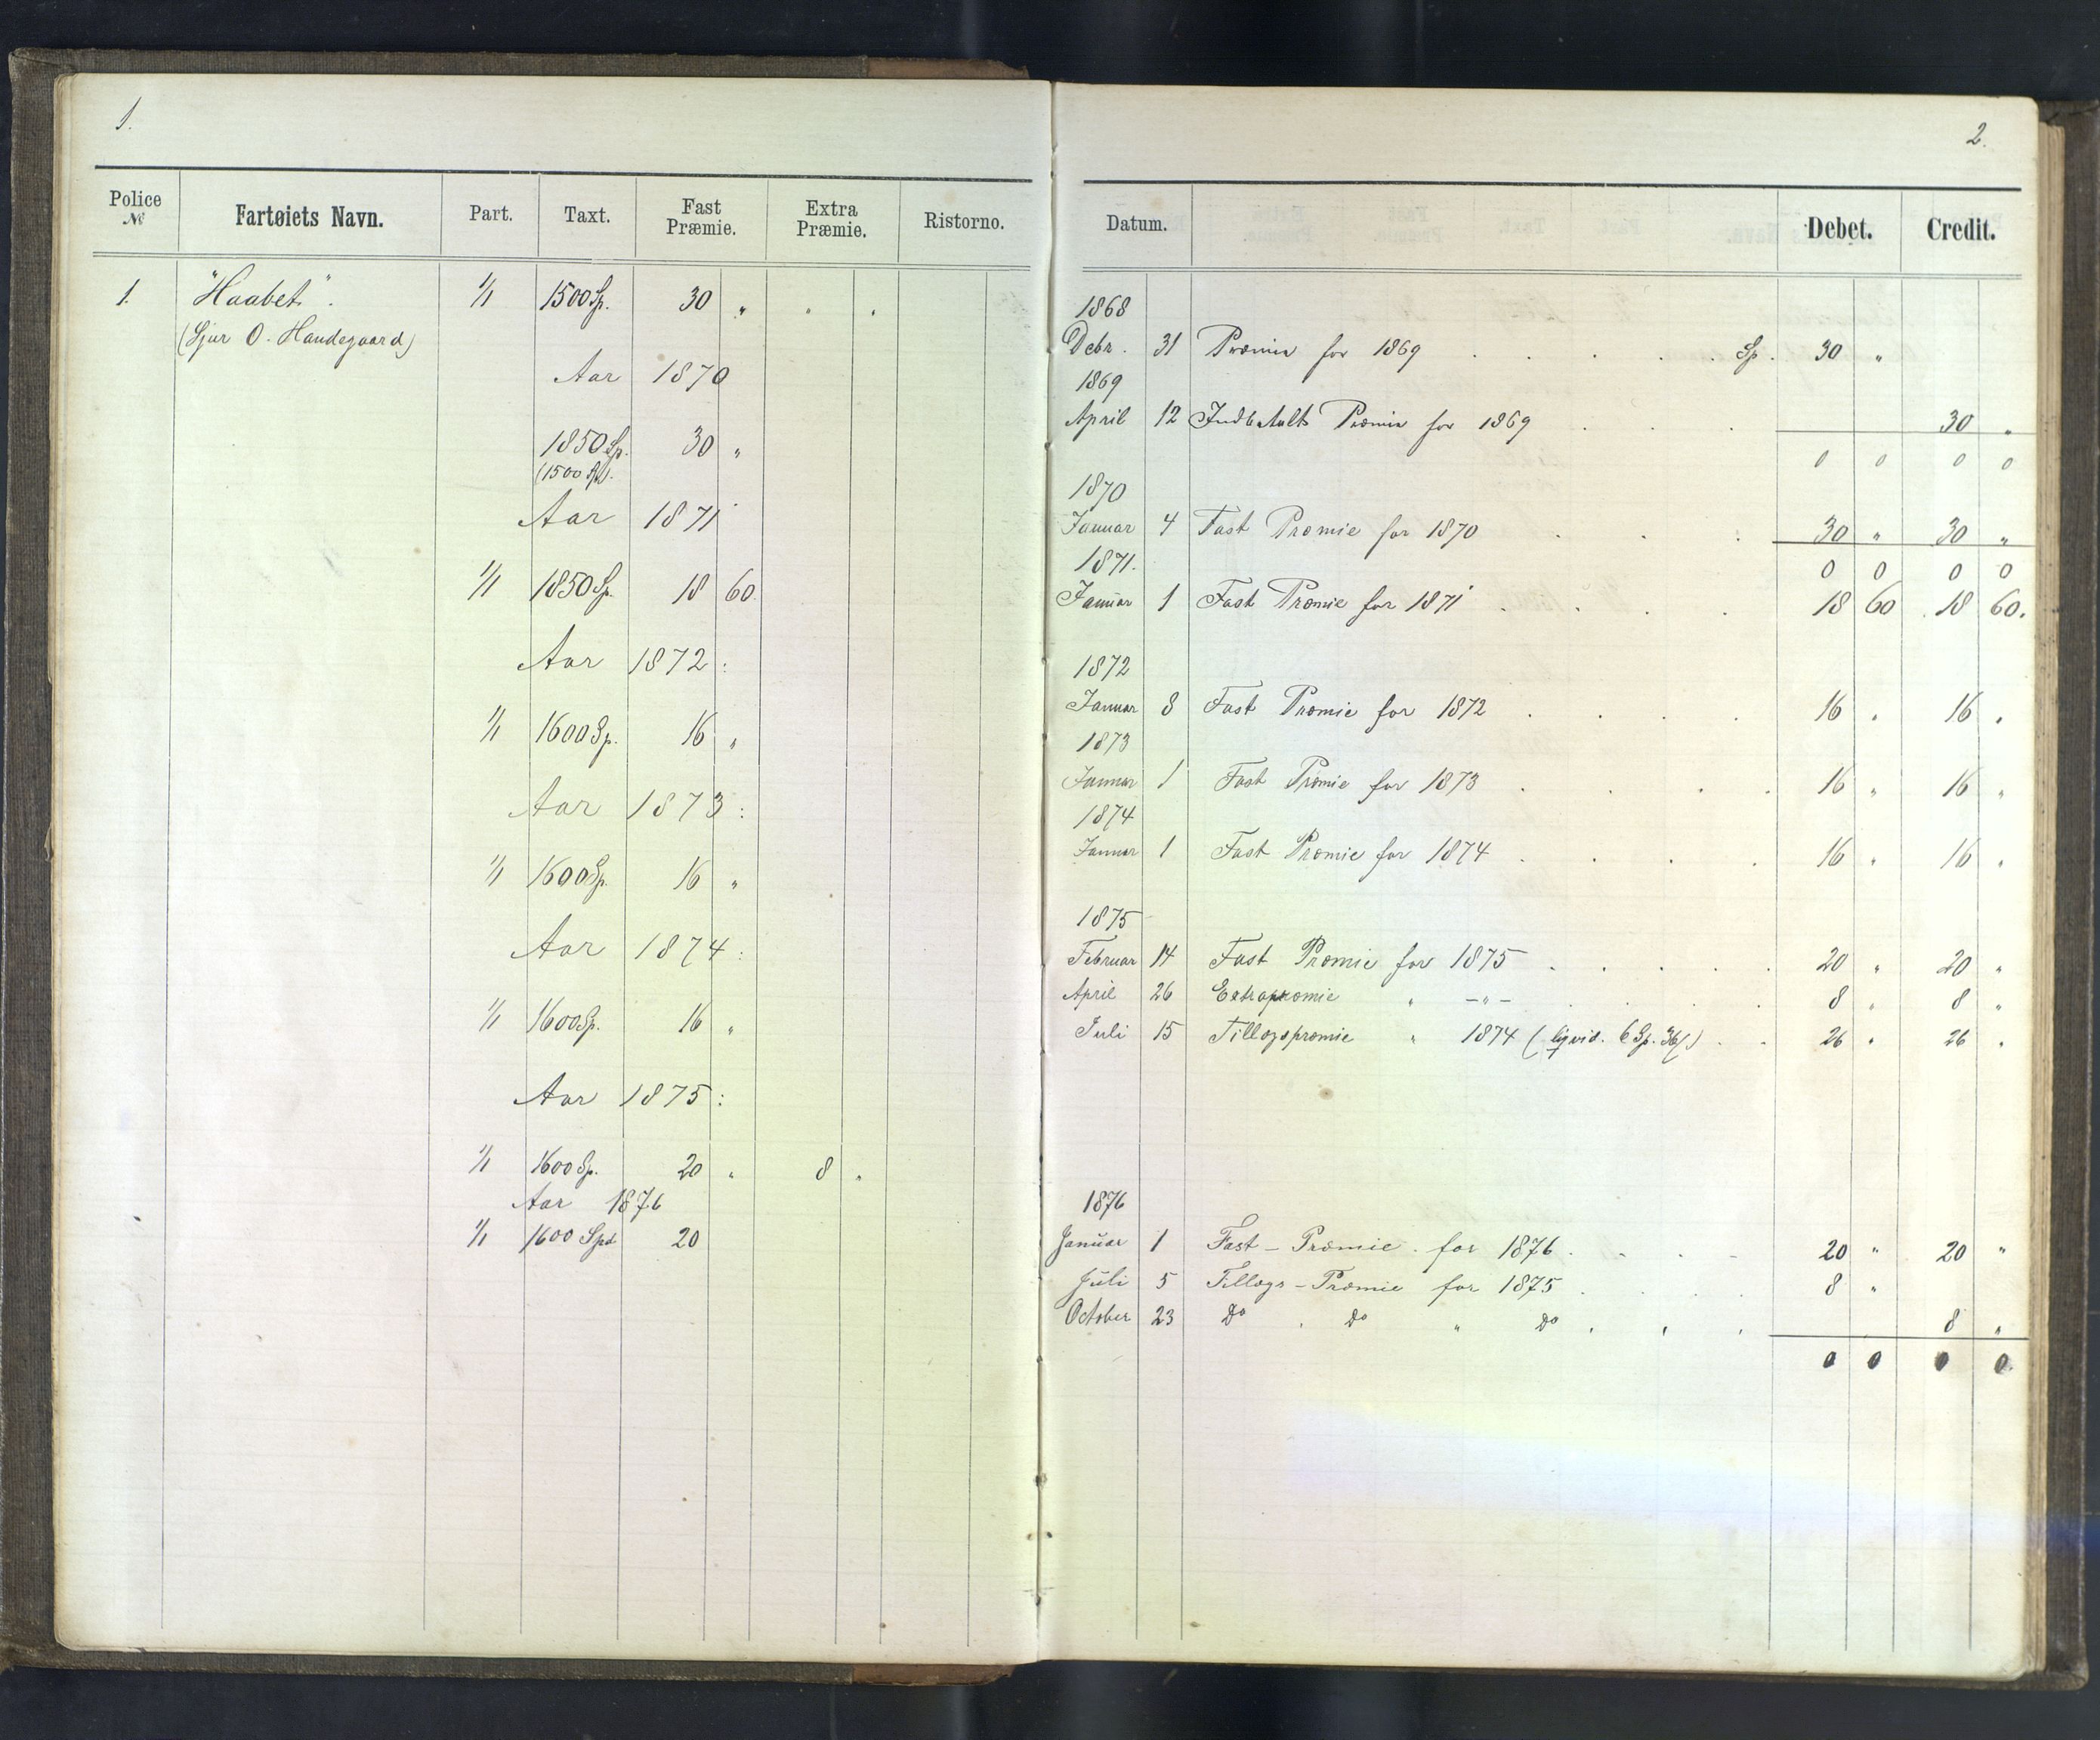 1.
Police № Fartøiets Navn. Part. Taxt. Fast Præmie. Extra Præmie. Ristorno.
1. "Haabet". 1/1 1500 Sp. 30 " " "
(Sjur O. Handegaard)
Aar 1870
1850 Sp. 30 "
(1500 Sp).
Aar 1871
1/1 1850 Sp. 18 60.
Aar 1872:
1/1 1600 Sp. 16 "
Aar 1873:
1/1 1600 Sp. 16 "
Aar 1874:
1/1 1600 Sp. 16 "
Aar 1875:
1/1 1600 Sp. 20 " 8 "
Aar 1876
1/1 1600 Spd 20
2.
Datum. Debet. Credit.
1868
Debr. 31 Præmie for 1869 . . . . . Sp. 30 "
1869
April 12 Indbetalt Præmie for 1869 . . . 30 "
0 0 0 0
1870
Januar 4 Fast Præmie for 1870 . . . 30 " 30 "
1871.
0 0 0 0
Januar 1 Fast Præmie for 1871 . . . . 18 60 18 60.
1872
Januar 8 Fast Præmie for 1872 . . . . 16 " 16 "
1873
Januar 1 Fast Præmie for 1873 . . . . 16 " 16 "
1874
Januar 1 Fast Præmie for 1874 . . . . 16 " 16 "
1875
Februar 14 Fast Præmie for 1875 . . . . . 20 " 20 "
April 26 Extrapræmie " -"- . . . . 8 " 8 "
Juli 15 Tillægspræmie " 1874 (liqvid. 6 Sp. 36 s) . . 26 " 26 "
1876
Januar 1 Fast-Præmie for 1876 . . . - 20 " 20 "
Juli 5 Tillægs-Præmie for 1875 . . . . 8 "
October 23 Do . Do " Do . . . 8 "
0 0 0 0